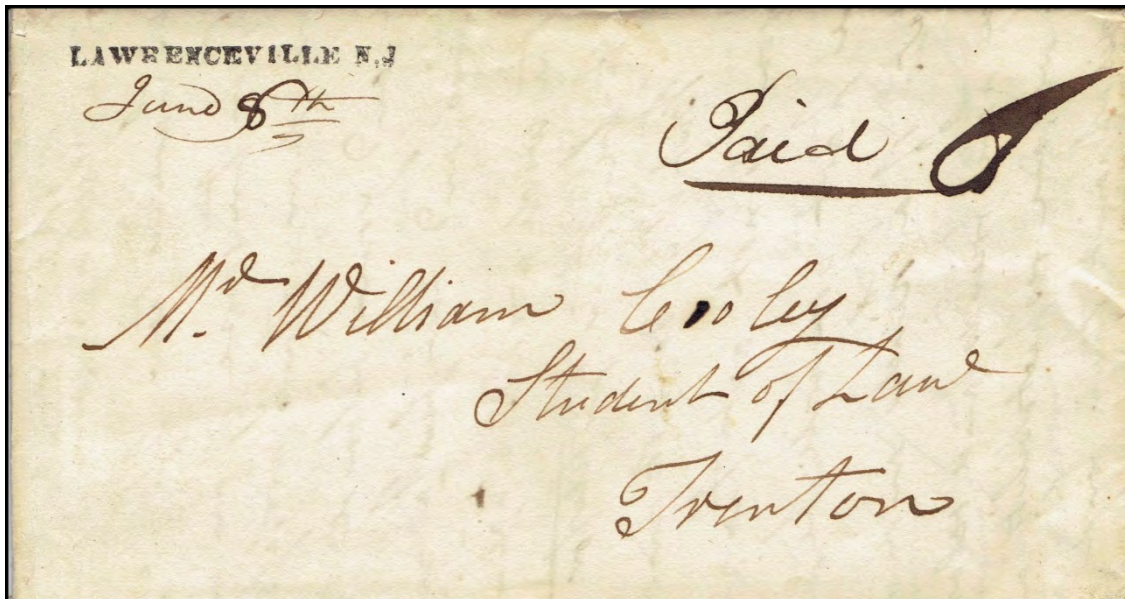 LAWRENCEVILLE N.J
June 8th
Paid 6
Mr. William Cooley
Student of Law
Trenton